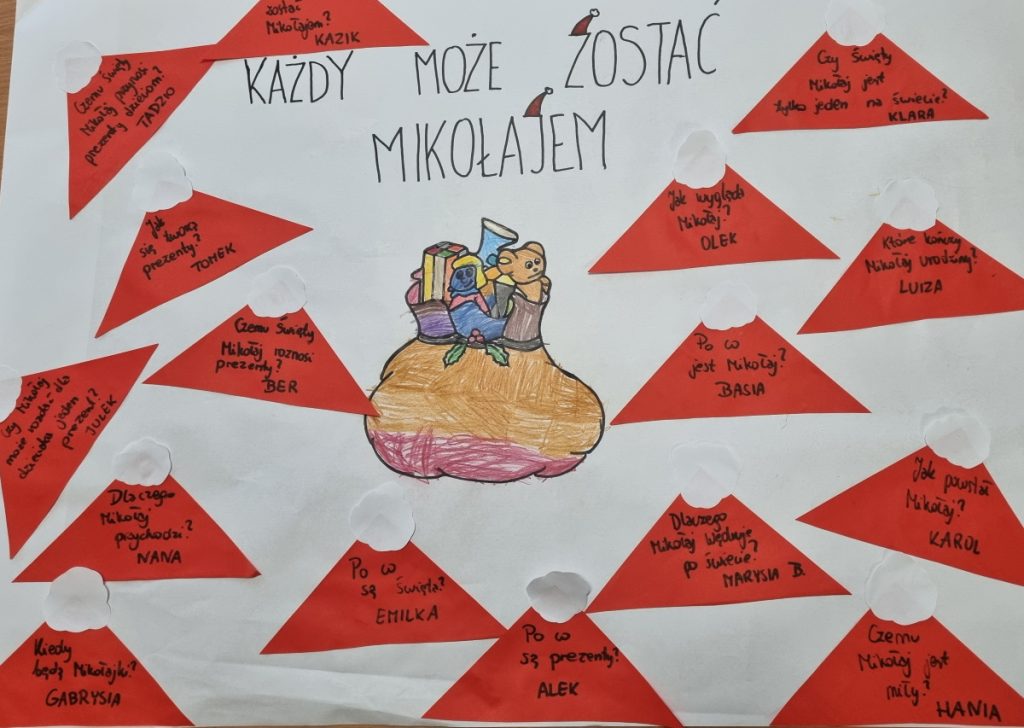 KAŻDY MOŻE ZOSTAĆ
MIKOŁAJEM
zostać
Mikołajem?
KAZIK
Czemu Święty
Mikołaj przynosi
prezenty dzieciom?
TADZIO
Czy Święty
Mikołaj jest
tylko jeden na świecie?
KLARA
Jak
się tworzą
prezenty?
TOMEK
Jak wygląda
Mikołaj?
OLEK
Które kończy
Mikołaj urodziny?
LUIZA
Czemu Święty
Mikołaj roznosi
prezenty?
BER
Po co
jest Mikołaj?
BASIA
Czy Mikołaj
może rozdać dla
dziecka jeden
prezent?
JULEK
Dlaczego
Mikołaj
przychodzi?
NANA
Po co
są Święta?
EMILKA
Dlaczego
Mikołaj wędruje
po świecie?
MARYSIA B.
Jak powstał
Mikołaj?
KAROL
Kiedy
będą Mikołajki?
GABRYSIA
Po co
są prezenty?
ALEK
Czemu
Mikołaj jest
miły?
HANIA